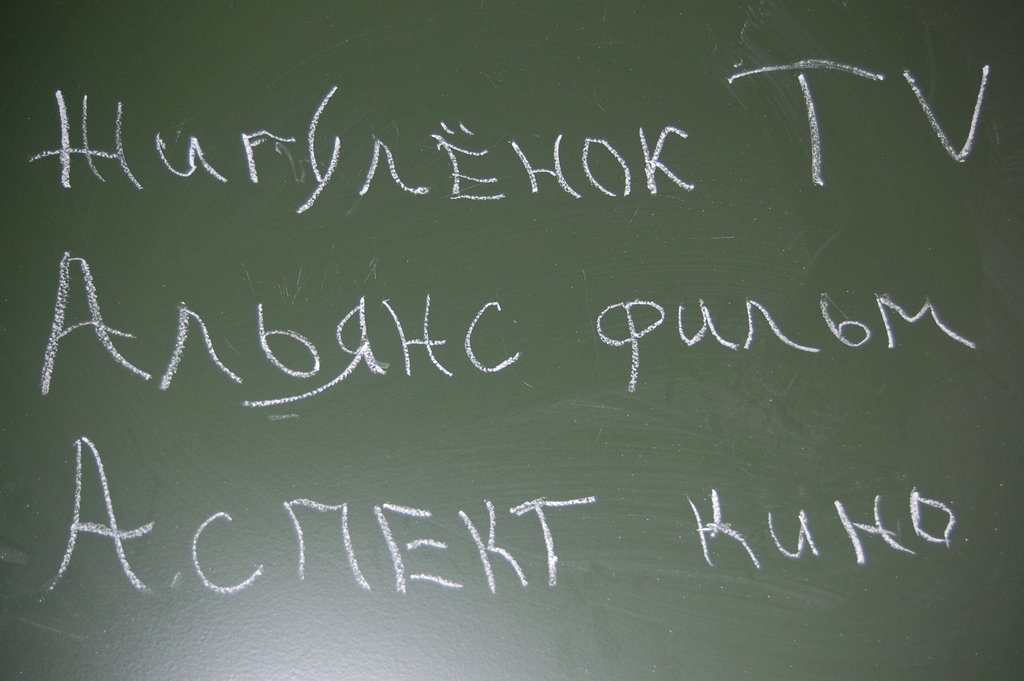 Жигулёнок TV
Альянс фильм
Аспект кино